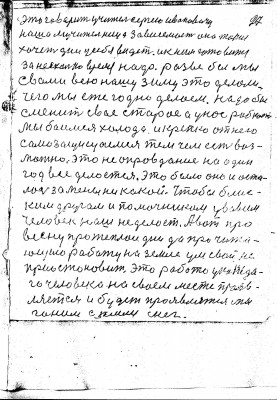 это говорит учитель сергею ивановичу
наша мучительница зависимость она тоже
хочет дни у себя видеть, и к ним готовится
за несколько время, напр. разве бы мы
с вами всю нашу зиму это делали,
чего мы ежегодно делаем, надо бы
сменит свое старое а у нас работ
мы боимся холода, и крепко от него
самозащищаемся тем чем есть воз-
можно, это не оправдание на один
год все делается, это было оно и оста-
лось замены никакой. чтобы близ-
ким другом и помощником
человек наш не делает. А вот про
весну про теплые дни да про
работу на земле ум свой не
приостановит, это работа у каждо-
го человека на своем месте прояв-
ляется и будет проявляется мы
гоним с земли снег.